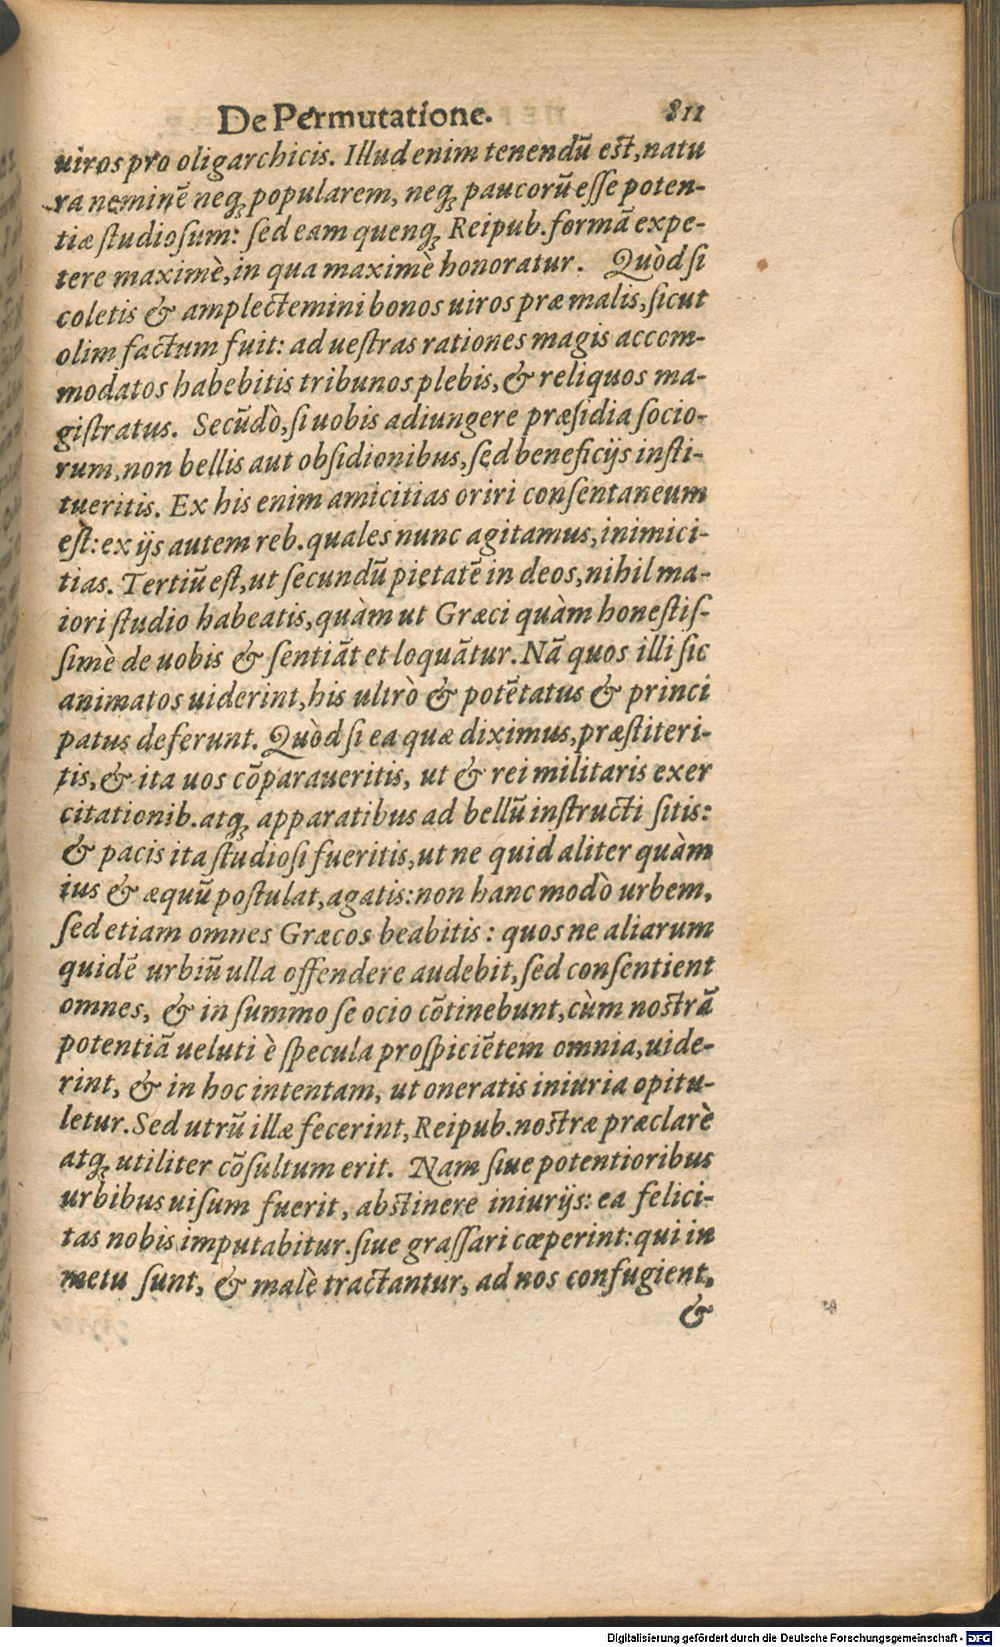 De Permutatione. 811
uiros pro oligarchicis. Illud enim tenendū est, natu
ra neminē neqꝫ popularem, neqꝫ paucorū esse poten-
tiæ studiosum: sed eam quenqꝫ Reipub. formā expe-
tere maximè, in qua maximè honoratur. Quòd si
coletis & amplectemini bonos uiros præ malis, sicut
olim factum fuit: ad uestras rationes magis accom-
modatos habebitis tribunos plebis, & reliquos ma-
gistratus. Secūdò, si uobis adiungere præsidia socio-
rum, non bellis aut obsidionibus, sed beneficijs insti-
tueritis. Ex his enim amicitias oriri consentaneum
est: ex ijs autem reb. quales nunc agitamus, inimici-
tias. Tertiū est, ut secundū pietatē in deos, nihil ma-
iori studio habeatis, quàm ut Græci quàm honestis-
simè de uobis & sentiāt et loquātur. Nā quos illi sic
animatos uiderint, his ultrò & potētatus & princi
patus deferunt. Quòd si ea quæ diximus, præstiteri-
tis, & ita uos cōparaueritis, ut & rei militaris exer
citationib. atqꝫ apparatibus ad bellū instructi sitis:
& pacis ita studiosi fueritis, ut ne quid aliter quàm
ius & æquū postulat, agatis: non hanc modò urbem,
sed etiam omnes Græcos beabitis: quos ne aliarum
quidē urbiū ulla offendere audebit, sed consentient
omnes, & in summo se ocio cōtinebunt, cùm nostrā
potentiā ueluti è specula prospiciētem omnia, uide-
rint, & in hoc intentam, ut oneratis iniuria opitu-
letur. Sed utrū illæ fecerint, Reipub. nostræ præclarè
atqꝫ utiliter cōsultum erit. Nam siue potentioribus
urbibus uisum fuerit, abstinere iniurijs: ea felici-
tas nobis imputabitur. siue grassari cœperint: qui in
metu sunt, & malè tractantur, ad nos confugient,
&
Digitalisierung gefördert durch die Deutsche Forschungsgemeinschaft - DFG